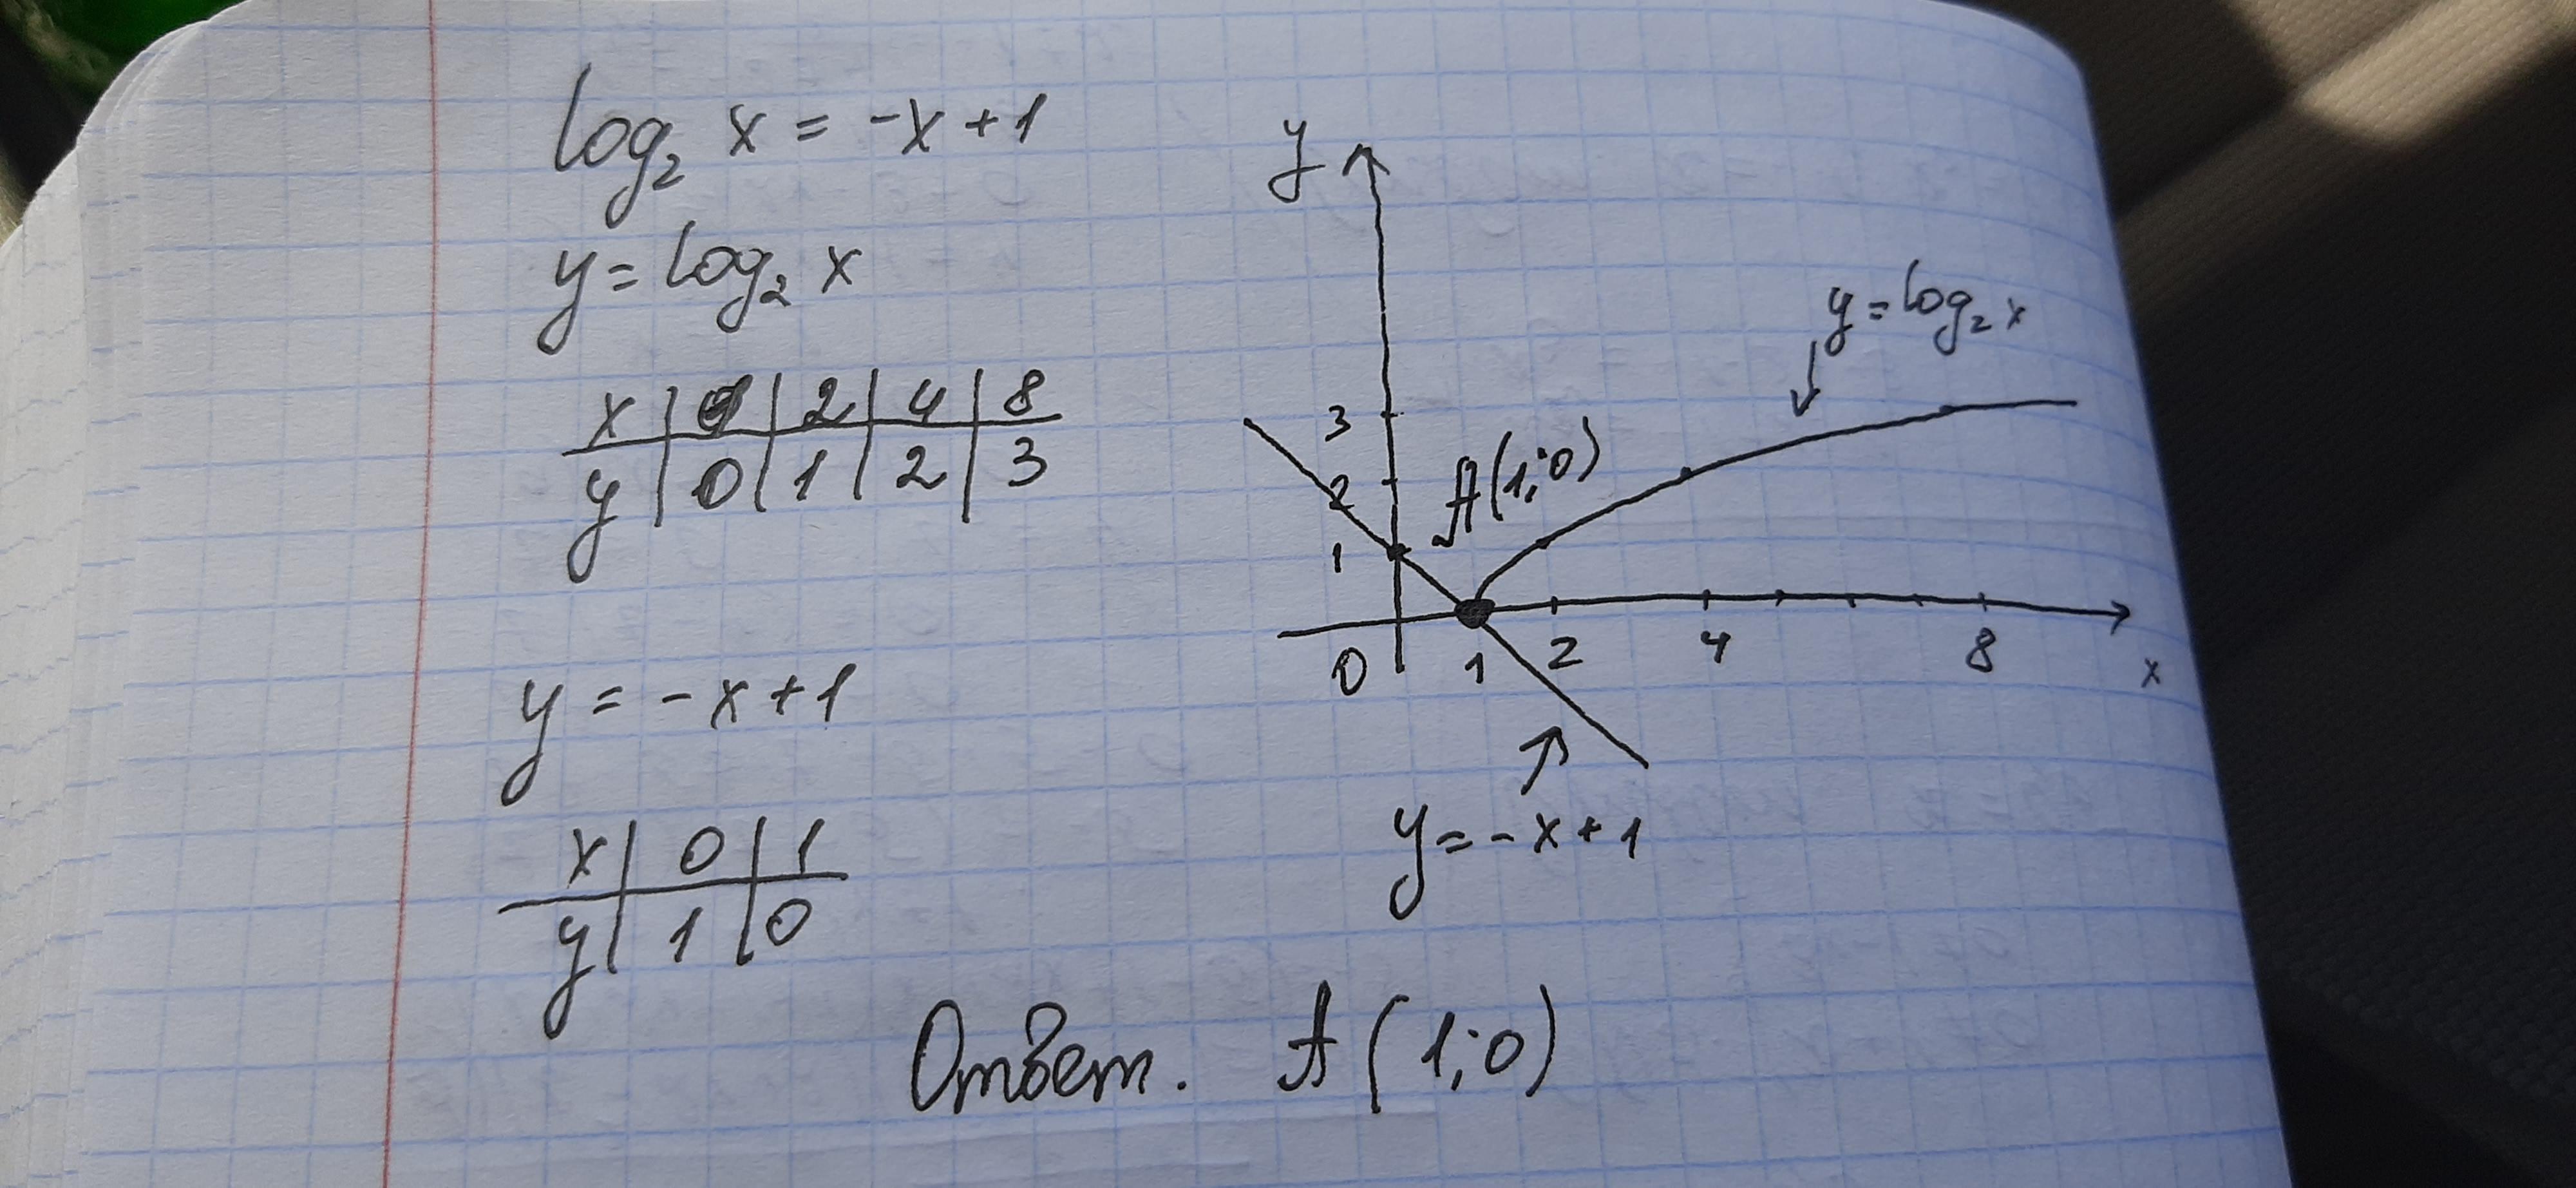 log₂ x = -x + 1
y = log₂ x
x | | 2 | 4 | 8
y | 0 | 1 | 2 | 3
y = -x + 1
x | 0 | 1
y | 1 | 0
y
y = log₂ x
3
2
1
A(1;0)
0 1 2 4 8 x
y = -x + 1
Ответ. A(1;0)